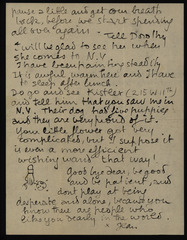 pause a little and get our breath
back, before we start spending
all over again. Tell Dorothy
I will be glad to see her when
she comes to N.Y.
I have been painting steadily
It is awful warm here and I have
to sleep after lunch.
Do go and see Kistler (215 W 11th)
and tell him that you saw me in
N.Y. Their dog had five puppies
and they are very proud of it.
Your little flower got very
complicated, but I suppose it
is even a more efficient
wishing wand that way!
Good bye dear, be good
and be patient, and
don't play at being
desperate and alone, because you
know there are people who
like you beauty in the world